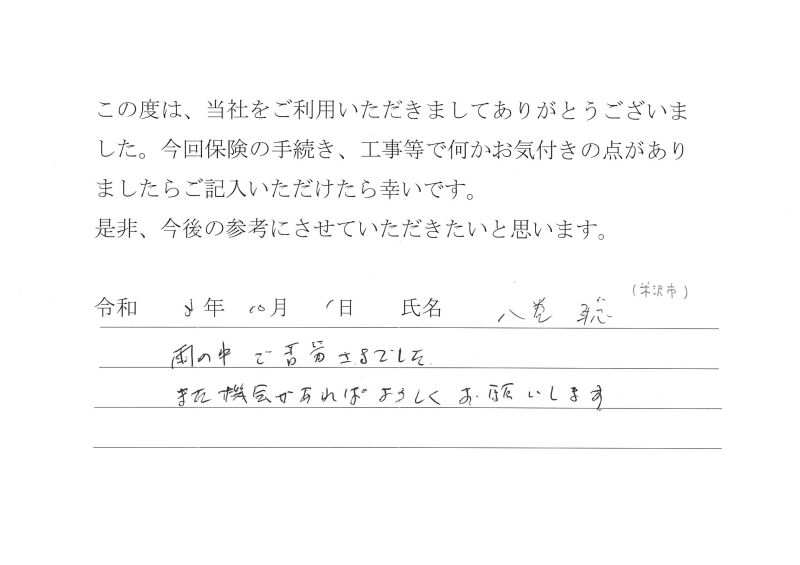 この度は、当社をご利用いただきましてありがとうございま
した。今回保険の手続き、工事等で何かお気付きの点があり
ましたらご記入いただけたら幸いです。
是非、今後の参考にさせていただきたいと思います。
(米沢市)
令和 年 10月 1日 氏名 八巻 聡
雨の中でご苦労さまでした
また機会があればよろしくお願いします